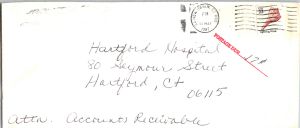 POSTAGE DUE 12¢
Hartford Hospital
80 Seymour Street
Hartford, Ct
06115
Attn. Accounts Receivable